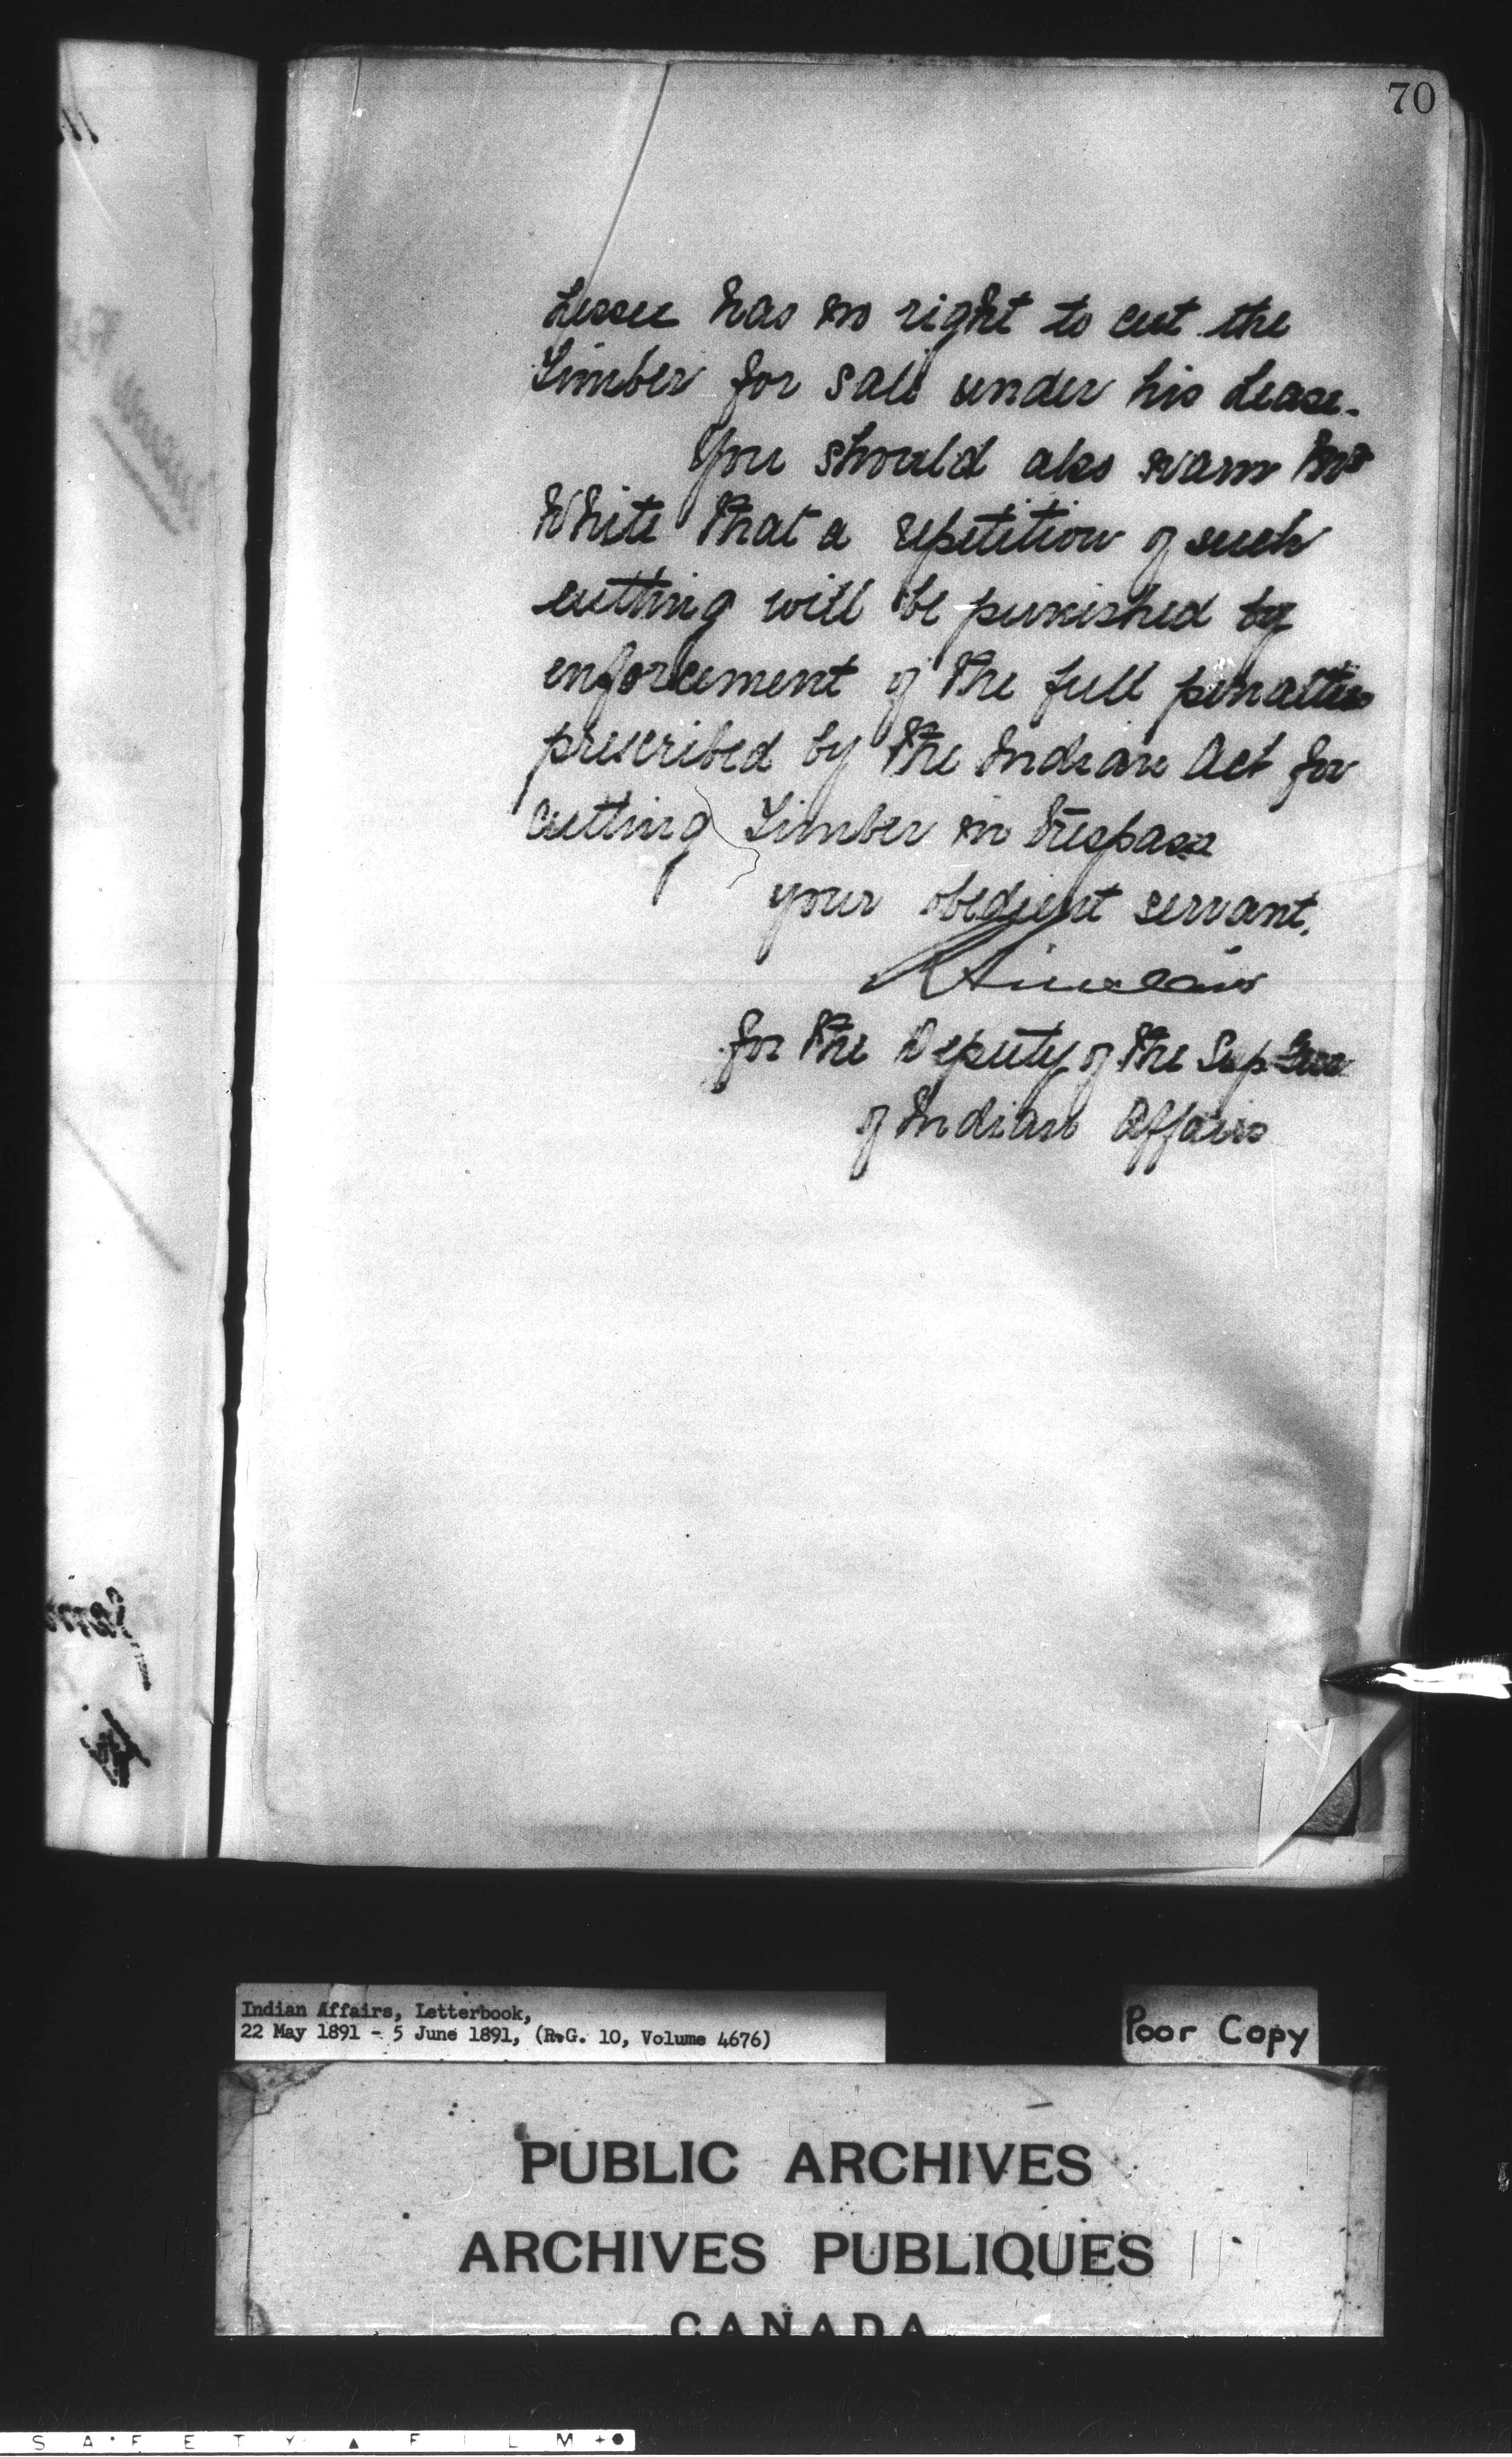 70
Lessee has no right to cut the
Timber for sale under his Lease.
You should also warn Mr
White that a repetition of such
cutting will be punished by
enforcement of the full penalties
prescribed by the Indian Act for
cutting Timber in trespass
your obedient servant,
for the Deputy of the Sup Gen
of Indian Affairs
Indian Affairs, Letterbook,
22 May 1891 - 5 June 1891, (R.G. 10, Volume 4676)
Poor Copy
PUBLIC ARCHIVES
ARCHIVES PUBLIQUES
CANADA
SAFETY ▲ FILM